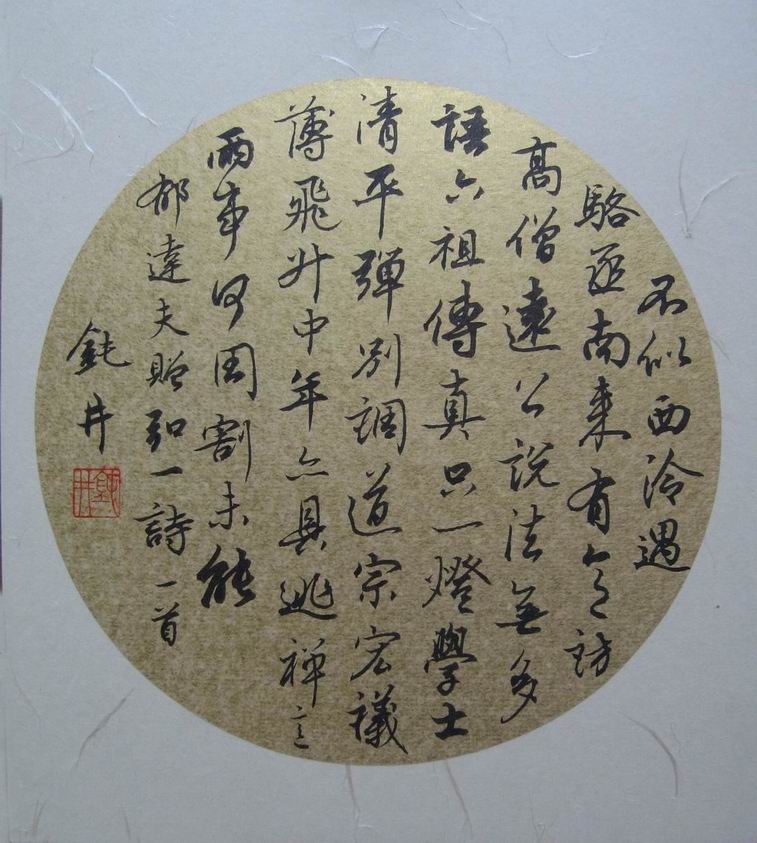 不似西泠遇
駱丞南来有意訪
高僧遠公説法無多
語六祖傳真只一燈學士
清平彈別調道宗宏議
薄飛升中年亦具逃禅意
兩事何周割未能
郁達夫贈弘一詩一首
鈍井